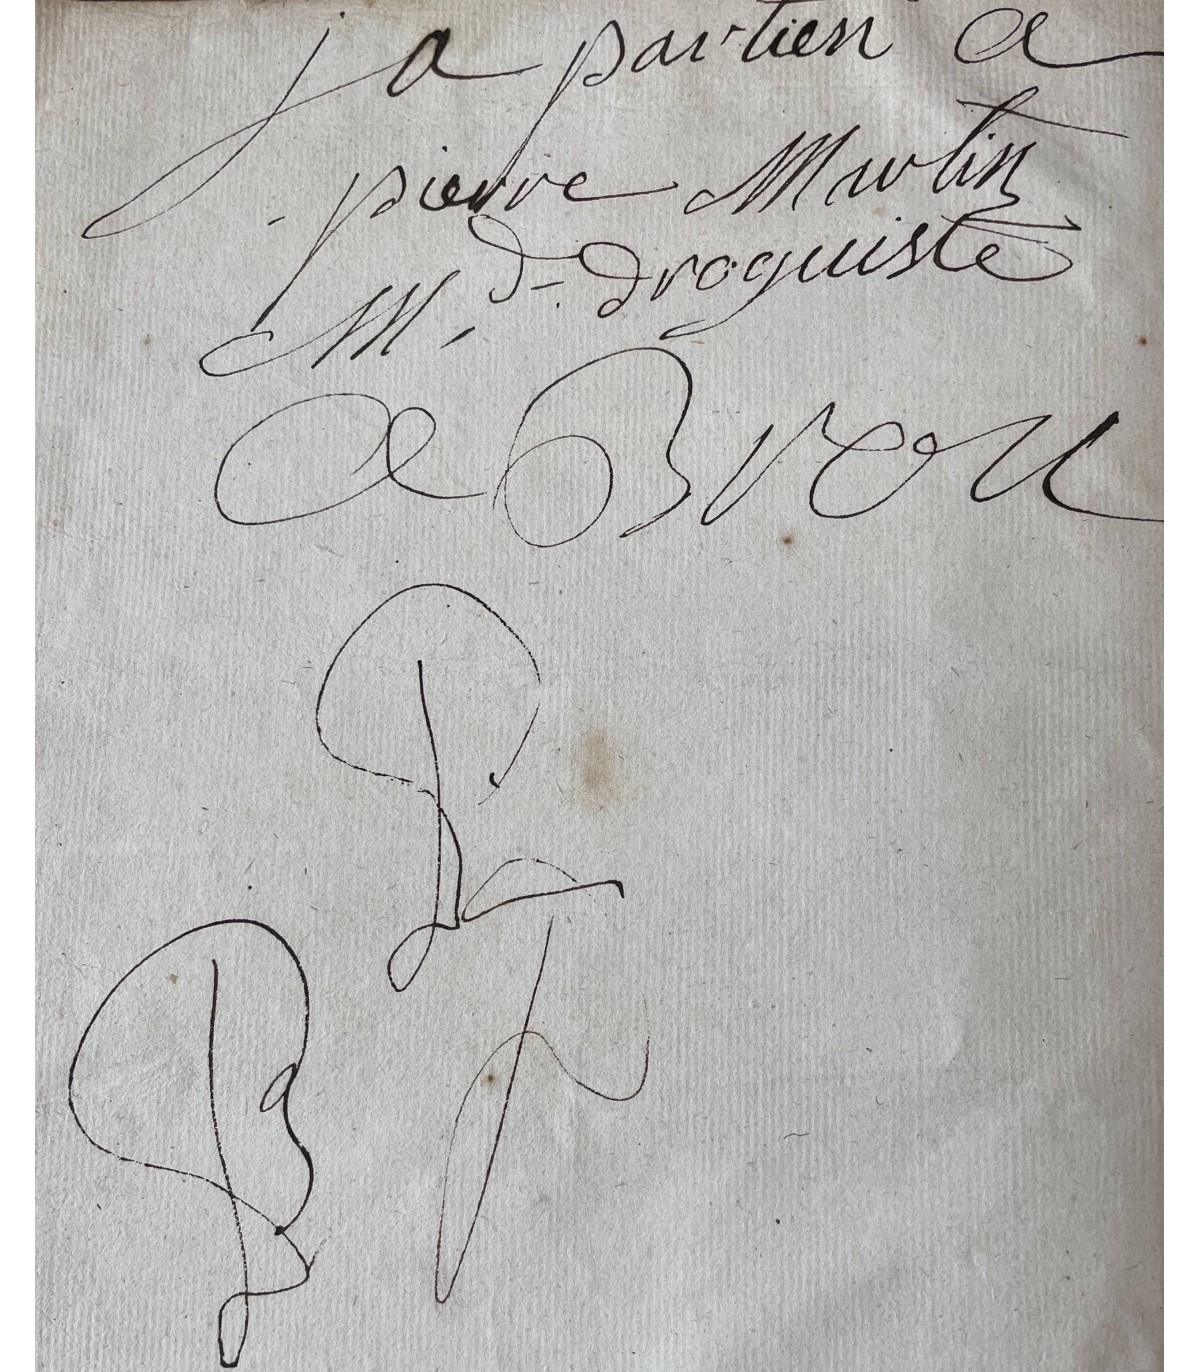 j'a partien a
pierre Martin
M.d droguiste
a Brou